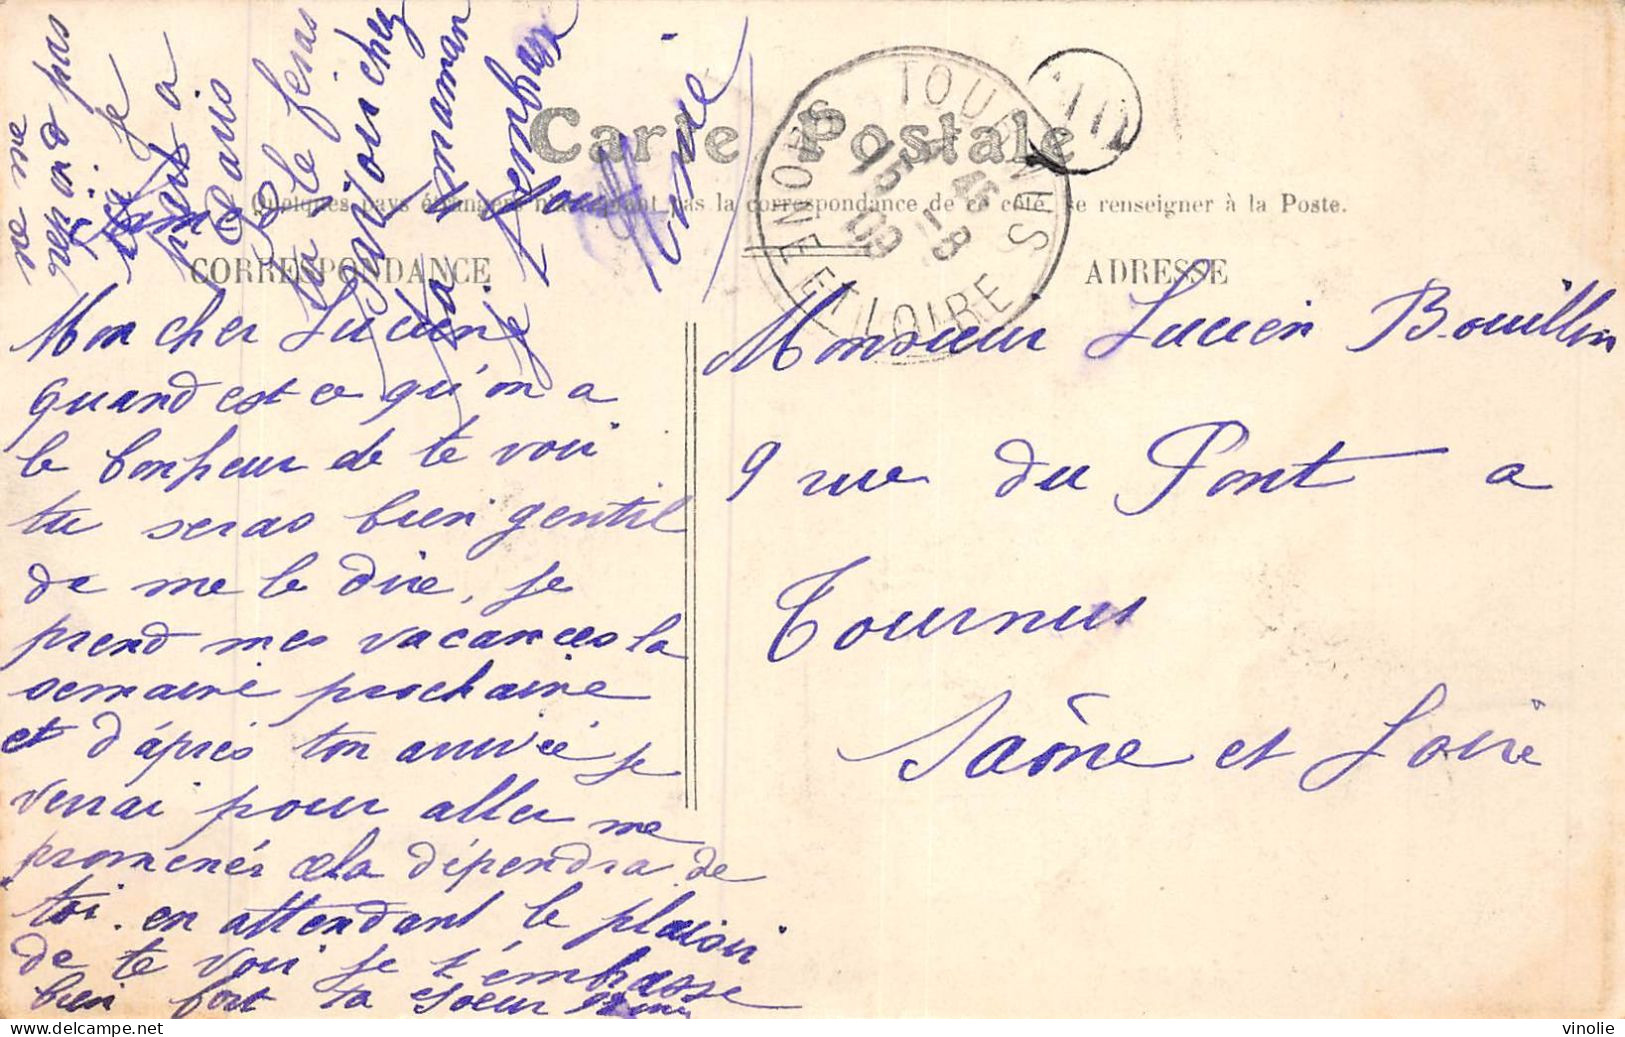 Carte Postale
Quelques pays étrangers n'acceptant pas la correspondance de ce côté, se renseigner à la Poste.
CORRESPONDANCE
ADRESSE
TOURNUS
SAONE ET LOIRE
15 45
5 -8
09
Mon cher Lucien
quand est ce qu'on a
le bonheur de te voir
tu seras bien gentil
de me le dire, je
prend mes vacances la
semaine prochaine
et d'áprès ton arrivée je
verrai pour aller me
promenér cela dépendra de
toi. en attendant le plaisir
de te voir je t'émbrasse
bien fort ta soeur
ne me
repond pas
je
à
Paris
tu le feras
chez
maman
Je
t'embrasse
Monsieur Lucien Bouillon
9 rue du Pont a
Tournus
Saône et Loire
vinolie